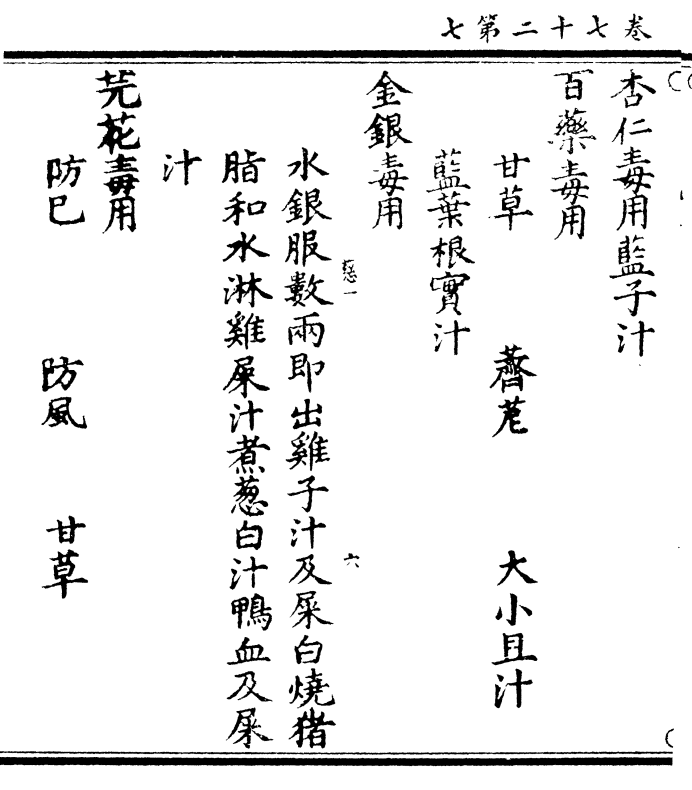 七第二十七卷
杏仁毒用藍子汁
百藥毒用
甘草 薺苨 大小豆汁
藍葉根實汁
金銀毒用
水銀服數兩即出雞子汁及屎白燒猪
脂和水淋雞屎汁煮葱白汁鴨血及屎
汁
芫花毒用
防己 防風 甘草